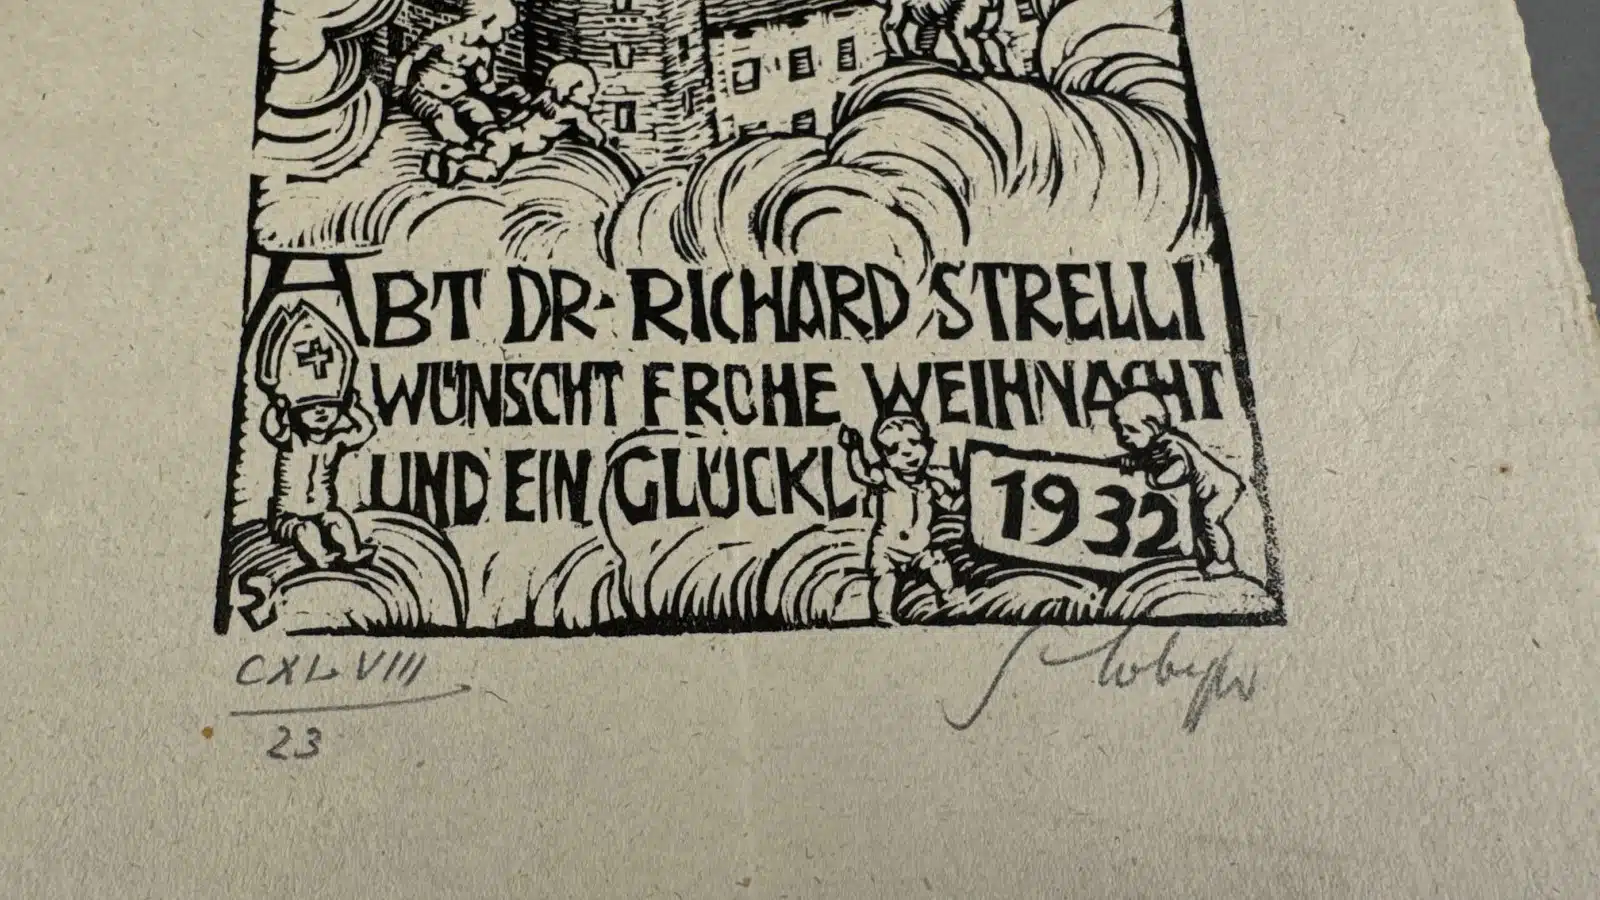 ABT DR· RICHARD STRELLI
WÜNSCHT FROHE WEIHNACHT
UND EIN GLÜCKL
1932
CXLVIII
23